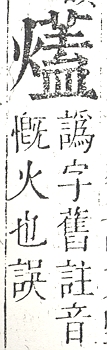 爁
譌字舊註音
慨火也誤